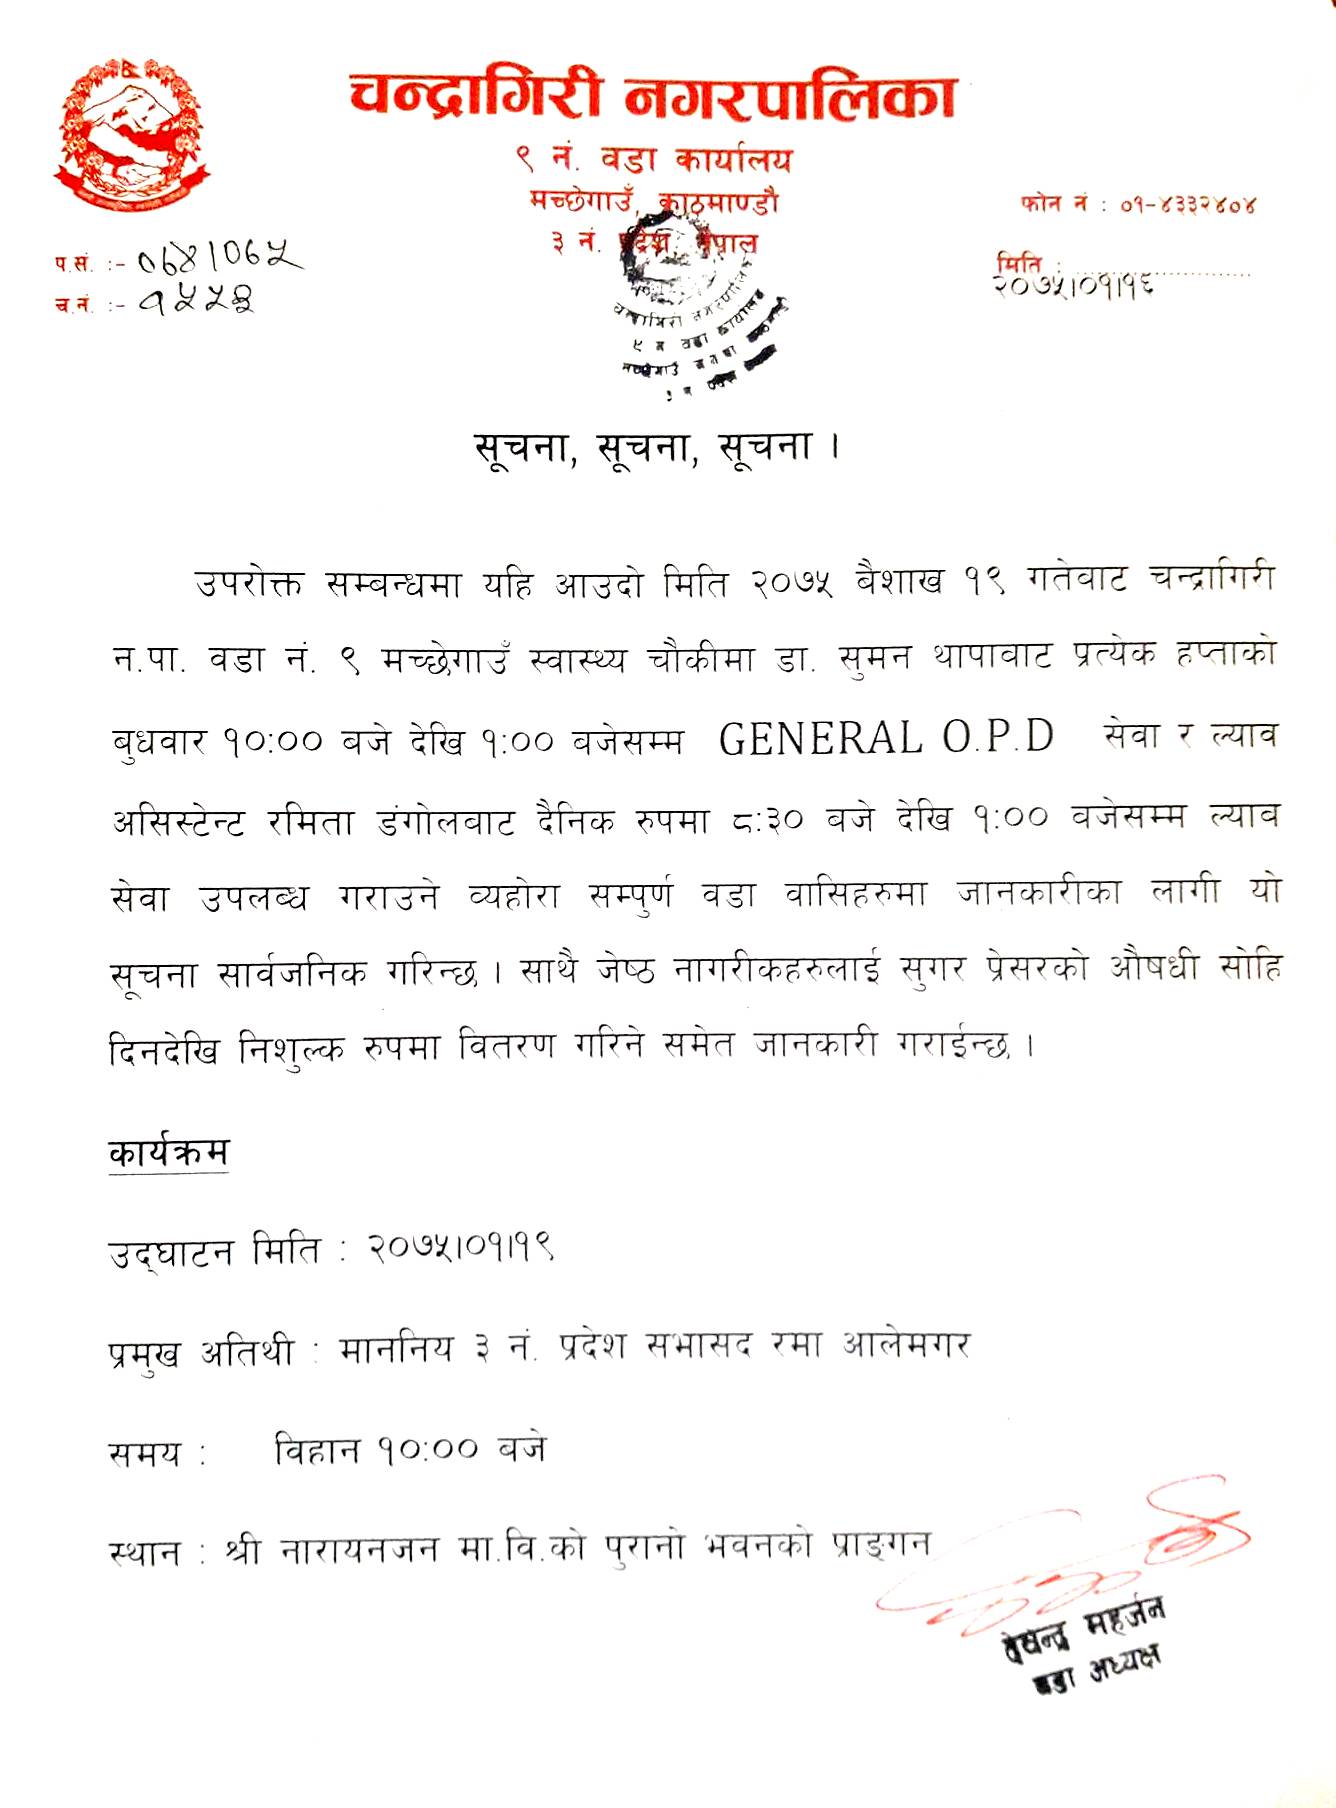 चन्द्रागिरी नगरपालिका
९ नं. वडा कार्यालय
मच्छेगाउँ, काठमाण्डौ
३ नं. प्रदेश, नेपाल
फोन नं : ०१-४३३२४०४
प.सं. :- ०७४/०७५
च.नं. :-
मिति :
२०७५।०१।१६
चन्द्रागिरी नगरपालिका
९ नं वडा कार्यालय
सूचना, सूचना, सूचना ।
उपरोक्त सम्बन्धमा यहि आउदो मिति २०७५ बैशाख १९ गतेवाट चन्द्रागिरी
न.पा. वडा नं. ९ मच्छेगाउँ स्वास्थ्य चौकीमा डा. सुमन थापावाट प्रत्येक हप्ताको
बुधवार १०:०० बजे देखि १:०० बजेसम्म GENERAL O.P.D सेवा र ल्याव
असिस्टेन्ट रमिता डंगोलवाट दैनिक रुपमा ८:३० बजे देखि १:०० वजेसम्म ल्याव
सेवा उपलब्ध गराउने व्यहोरा सम्पुर्ण वडा वासिहरुमा जानकारीका लागी यो
सूचना सार्वजनिक गरिन्छ । साथै जेष्ठ नागरीकहरुलाई सुगर प्रेसरको औषधी सोहि
दिनदेखि निशुल्क रुपमा वितरण गरिने समेत जानकारी गराईन्छ ।
कार्यक्रम
उद्घाटन मिति : २०७५।०१।१९
प्रमुख अतिथी : माननिय ३ नं. प्रदेश सभासद रमा आलेमगर
समय : विहान १०:०० बजे
स्थान : श्री नारायनजन मा.वि.को पुरानो भवनको प्राङ्गन
महर्जन
वडा अध्यक्ष